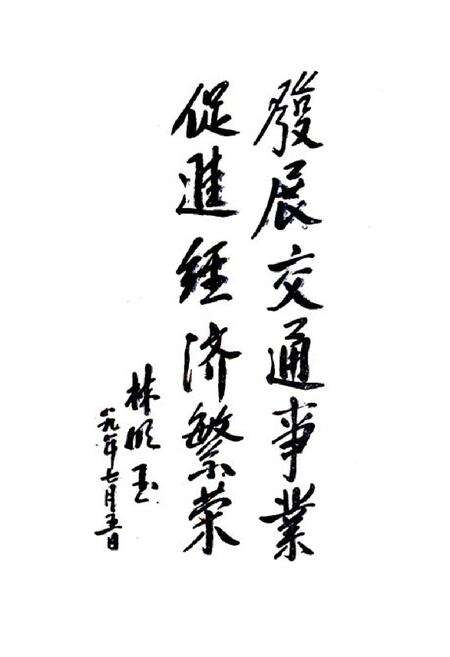 發展交通事業
促進經济繁荣
林明玉
八九年七月五日